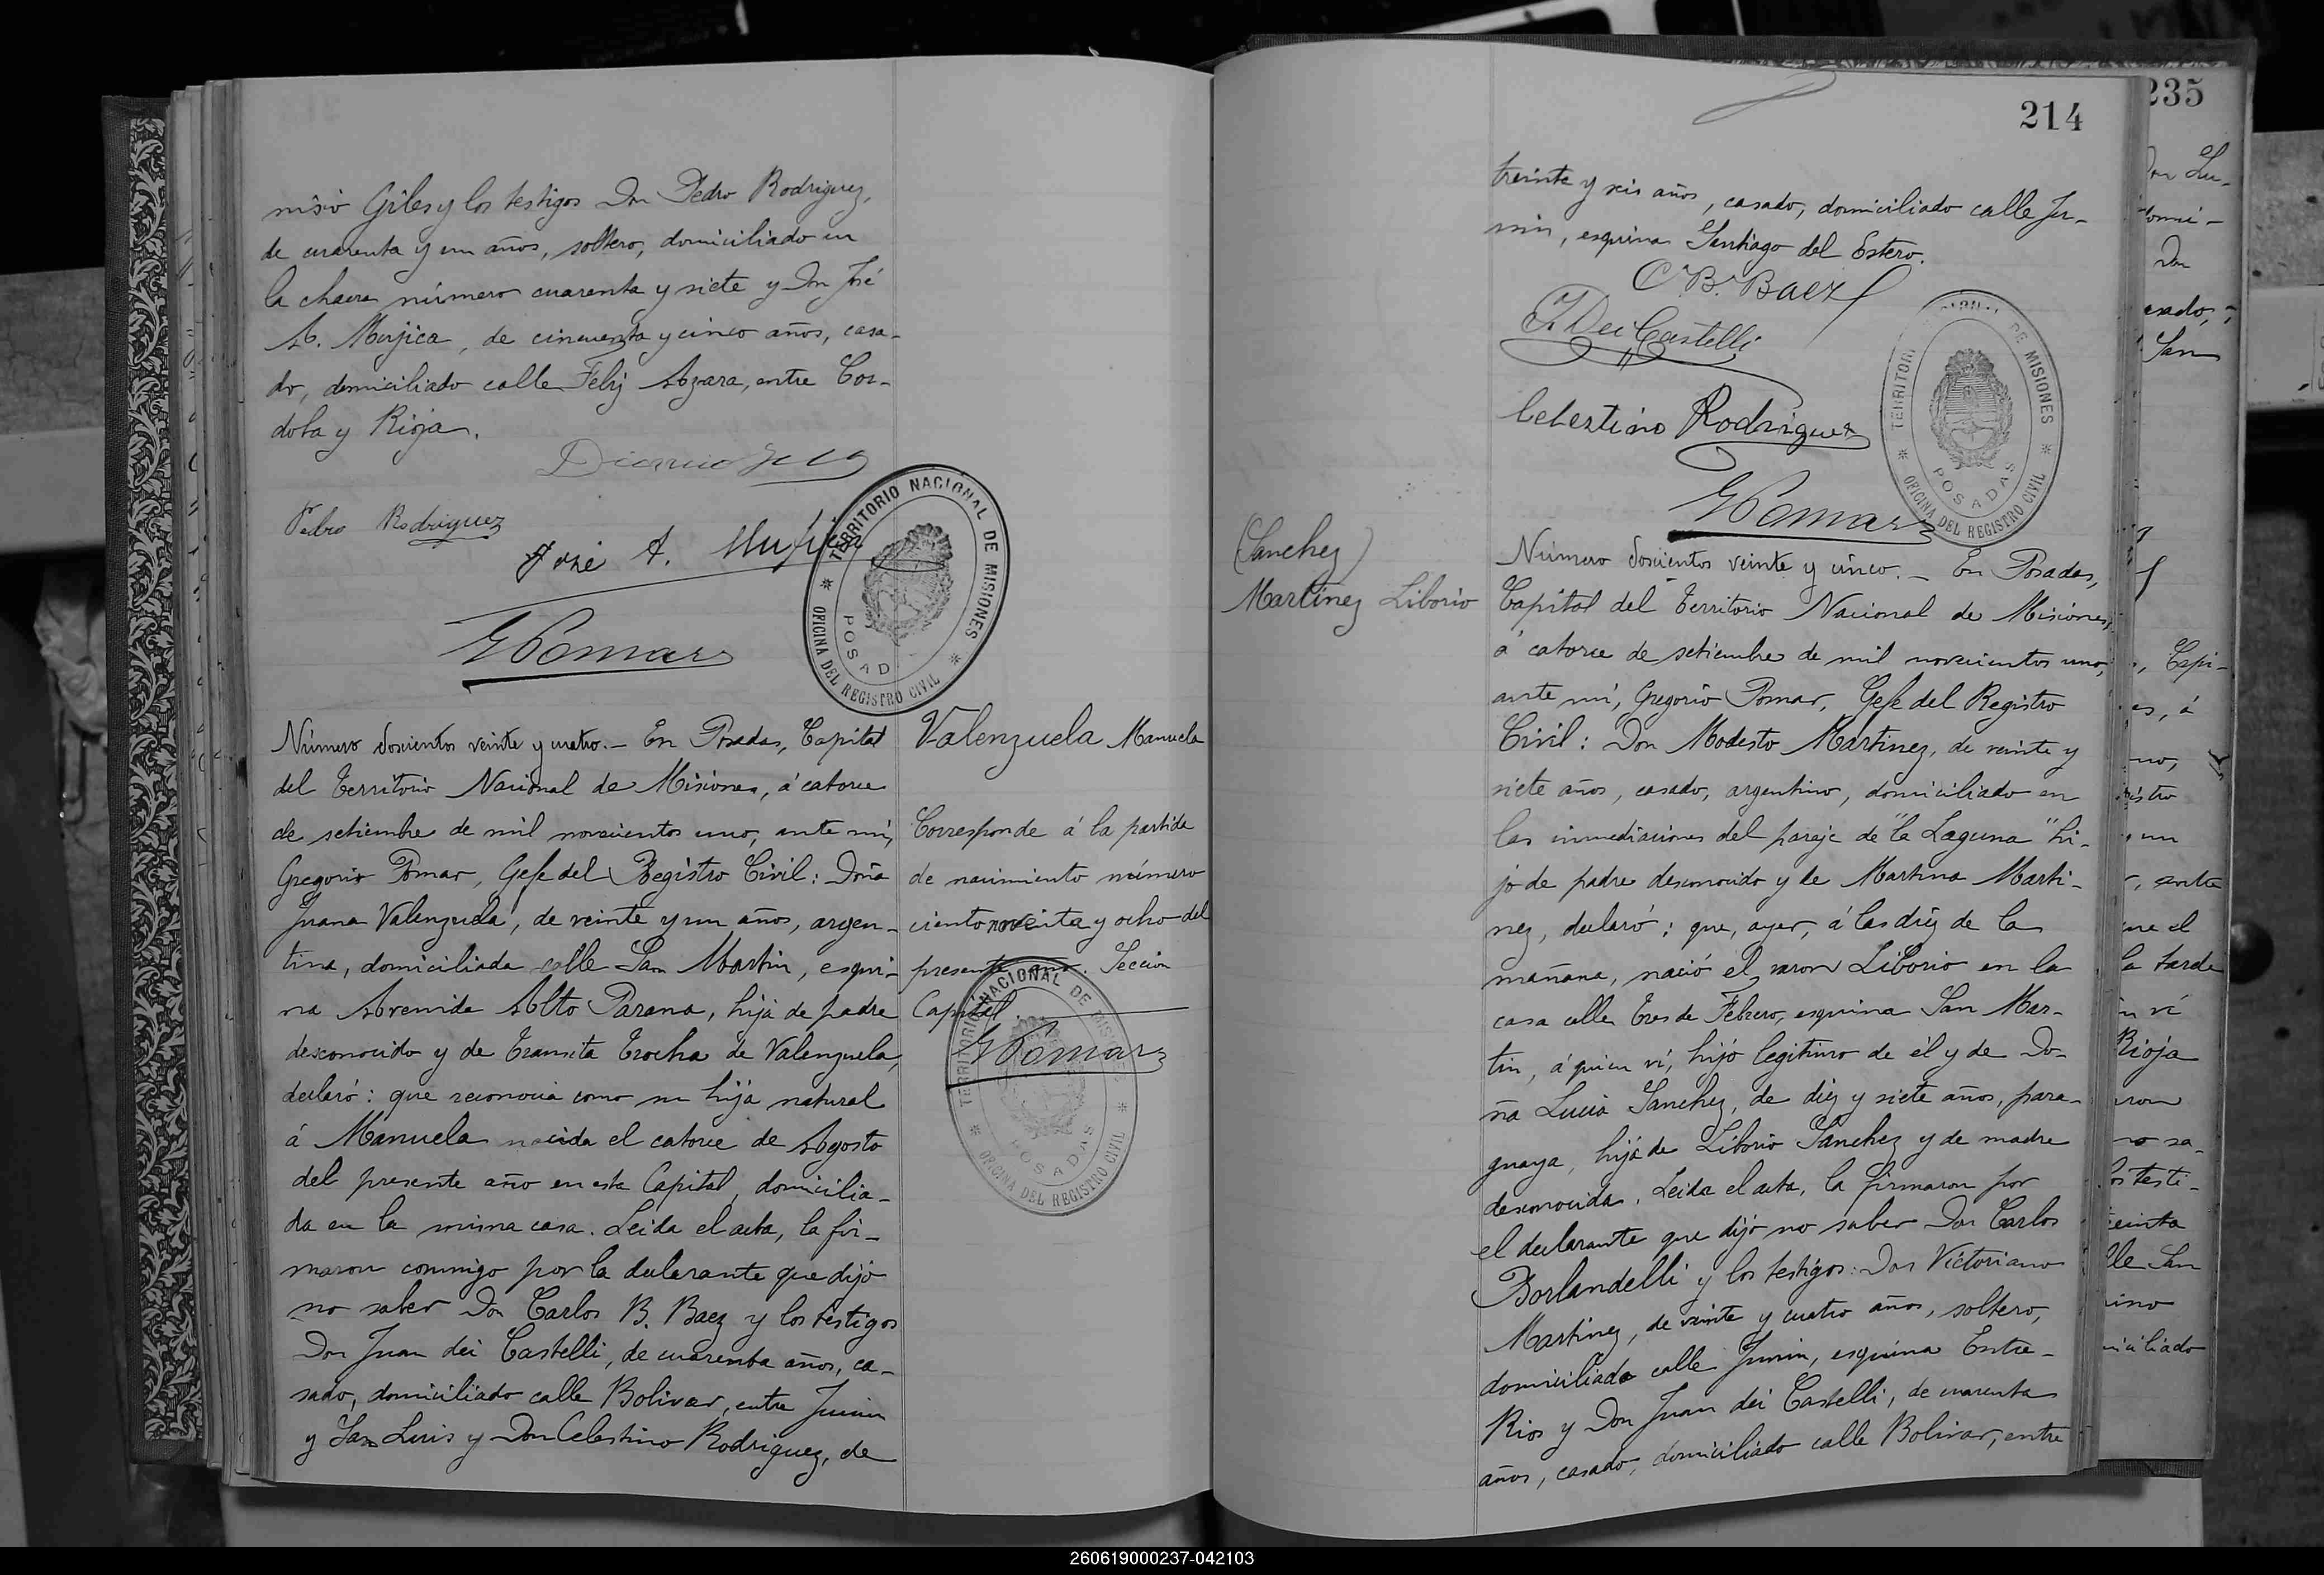 nisio Giles y los testigos Don Pedro Rodriguez,
de cuarenta y un años, soltero, domiciliado en
la chacra número cuarenta y siete y Don José
A. Mujica, de cincuenta y cinco años, casa-
do, domiciliado calle Felix Azara, entre Cor-
doba y Rioja.
Pedro Rodriguez
José A. Mujica
G Pomar
TERRITORIO NACIONAL DE MISIONES
OFICINA DEL REGISTRO CIVIL
POSAD
Número doscientos veinte y cuatro.- En Posadas, Capital
del Territorio Nacional de Misiones, á catorce
de setiembre de mil novecientos uno, ante mí,
Gregorio Pomar, Gefe del Registro Civil: Doña
Juana Valenzuela, de veinte y un años, argen-
tina, domiciliada calle San Martin, esqui-
na Avenida Alto Parana, hija de padre
desconocido y de Transita Trocha de Valenzuela,
declaró: que reconocia como su hija natural
á Manuela nacida el catorce de Agosto
del presente año en esta Capital, domicilia-
da en la misma casa. Leida el acta, la fir-
maron conmigo por la declarante que dijo
no saber Don Carlos B. Baez y los testigos
Don Juan dei Castelli, de cuarenta años, ca-
sado, domiciliado calle Bolivar, entre Junin
y San Luis y Don Celestino Rodriguez, de
Valenzuela Manuela
Corresponde á la partida
de nacimiento número
ciento noventa y ocho del
presente año. Seccion
Capital.
G Pomar
TERRITORIO NACIONAL DE MISIONES
OFICINA DEL REGISTRO CIVIL
POSADAS
214
treinta y seis años, casado, domiciliado calle Ju-
nin, esquina Santiago del Estero.
C. B. Baez
J. Dei Castelli
Celestino Rodriguez
G Pomar
TERRITORIO NACIONAL DE MISIONES
OFICINA DEL REGISTRO CIVIL
POSADAS
(Sanchez)
Martinez Liborio
Número doscientos veinte y cinco.- En Posadas,
Capital del Territorio Nacional de Misiones,
á catorce de setiembre de mil novecientos uno,
ante mí, Gregorio Pomar, Gefe del Registro
Civil: Don Modesto Martinez, de veinte y
siete años, casado, argentino, domiciliado en
las inmediaciones del paraje de "la Laguna" hi-
jo de padre desconocido y de Martina Marti-
nez, declaró: que, ayer, á las diez de la
mañana, nació el varon Liborio en la
casa calle Tres de Febrero, esquina San Mar-
tin, á quien ví, hijo legitimo de él y de Do-
ña Lucia Sanchez, de diez y siete años, para-
guaya, hija de Liborio Sanchez y de madre
desconocida. Leida el acta, la firmaron por
el declarante que dijo no saber Don Carlos
Borlandelli y los testigos: Don Victoriano
Martinez, de veinte y cuatro años, soltero,
domiciliado calle Junin, esquina Entre-
Rios y Don Juan dei Castelli, de cuarenta
años, casado, domiciliado calle Bolivar, entre
235
Don Lu-
domi-
Don
casado,
San
, Capi-
es, á
uno,
istro
un
, ante
que el
la tarde
ví
Rioja
varon
no sa-
los testi-
treinta
lle San
miciliado
260619000237-042103